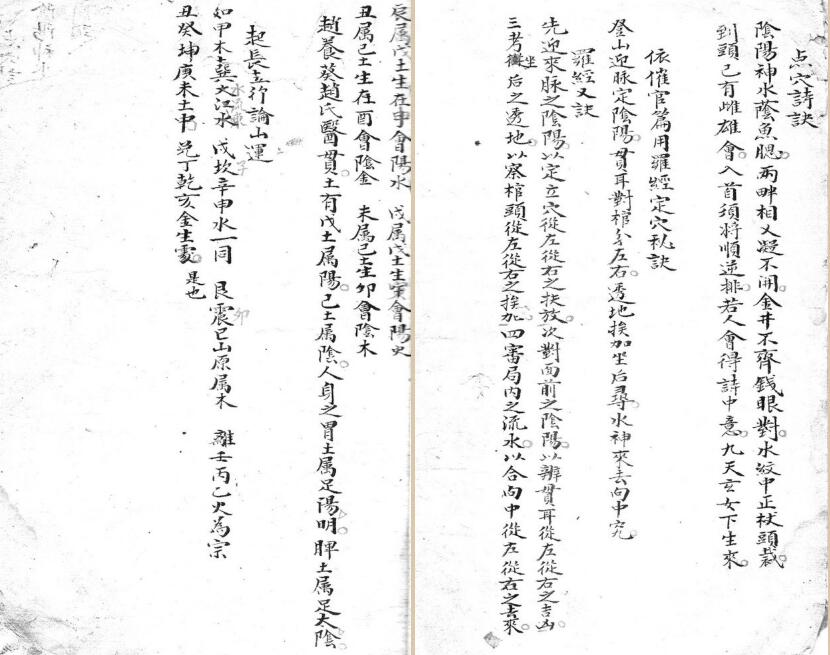 点穴詩訣
陰陽神水蔭魚腮兩畔相乂凝不開金井不齊錢眼對水紋中正杖頭裁
到頭己有雌雄會入首須將順逆排若人會得詩中意九天玄女下生來
依催官篇用羅經定穴秘訣
登山迎脉定陰陽貫耳對棺分左右透地挨加坐后尋水神來去向中究
羅經又訣
先迎來脉之陰陽以定立穴從左從右之挨放次對面前之陰陽以辨貫耳從左從右之吉凶
三考坐后之透地以察棺頭從左從右之挨加四審局内之流水以合向中從左從右之去來
辰属戊土生在申會陽水 戌属戊土生寅會陽火
丑属己土生在酉會陰金 未属己土生卯會陰木
趙養葵趙氏醫貫土有戊土属陽己土属陰人身之胃土属足陽明脾土属足太陰
起長立行論山運
如甲木巽大江水 戌坎辛申水一同 艮震巳山原属木 離壬丙乙火為宗
丑癸坤庚未土中 兌丁乾亥金生處 是也